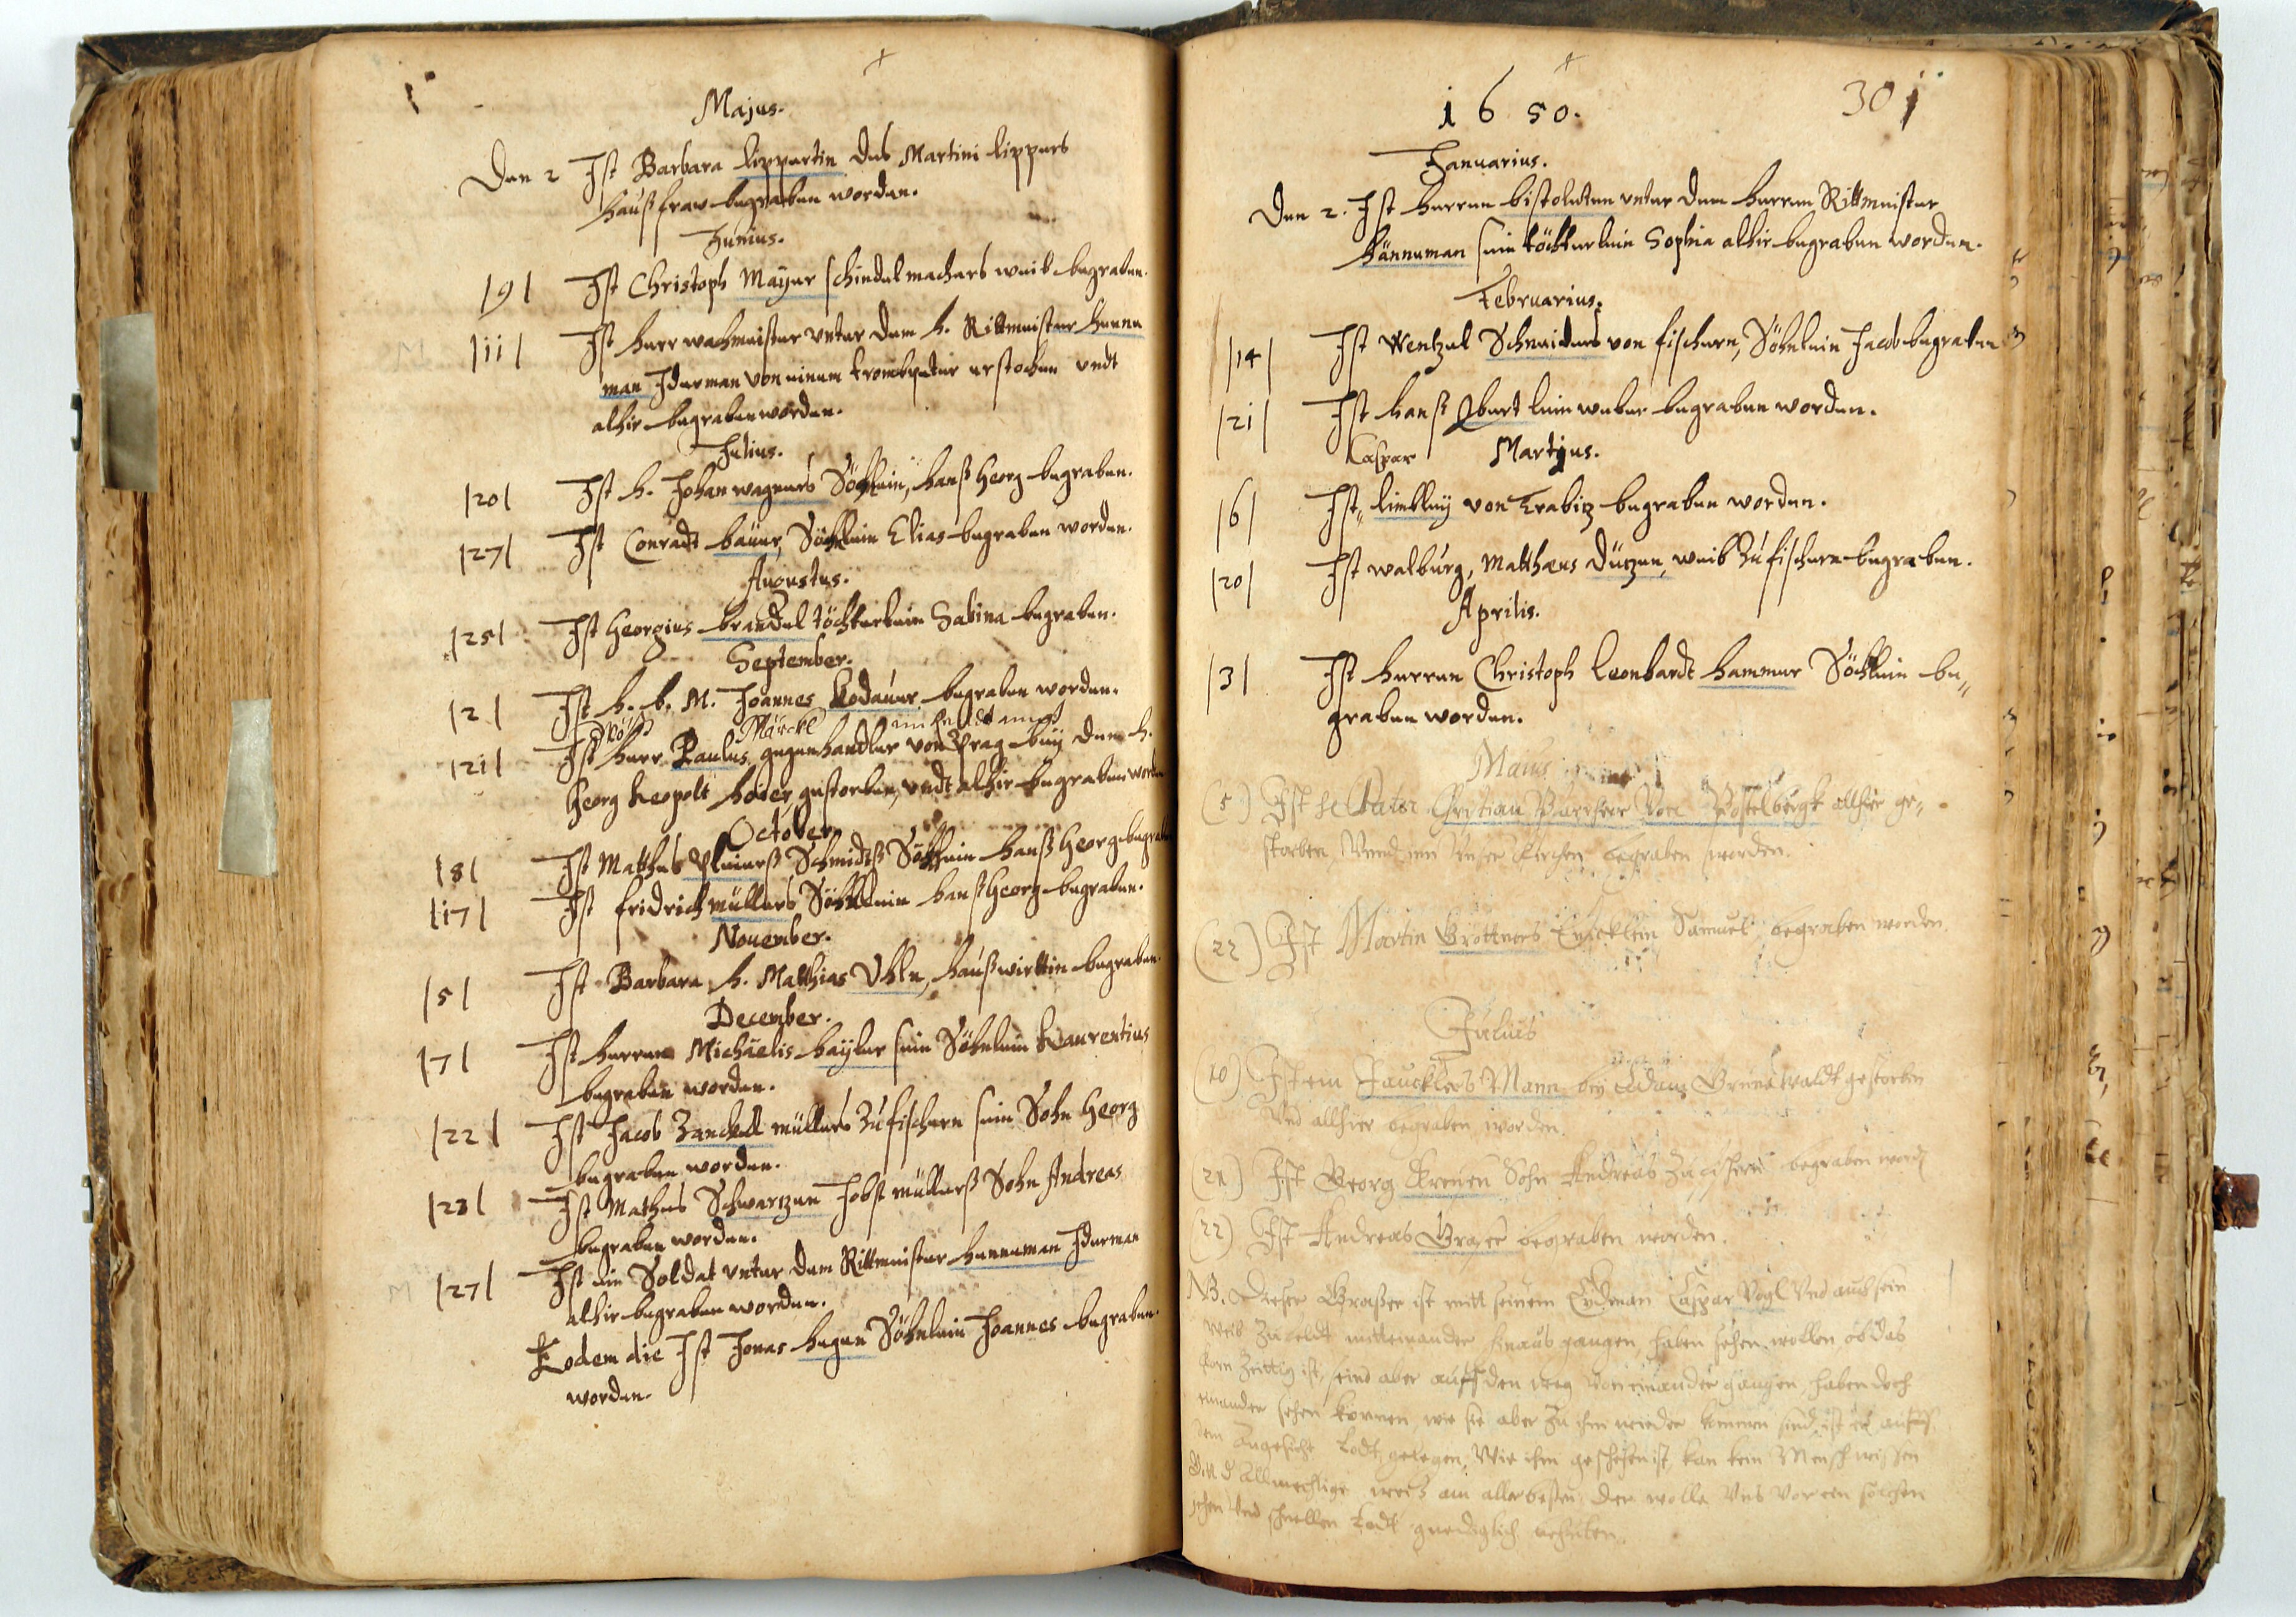 Majus.
Den 2 Ist Barbara lippertin des Martini lippers
haußfraw begraben worden.
Junius.
|9| Ist Christoph Mayer schindelmachers weib begraben.
|11| Ist herr wachmeister unter dem h. Rittmeister henne
man Iderman von einem trombeter erstochen undt
alhie begraben worden.
Julius.
|20| Ist h. Johan wagners Söhlein, hanß Georg begraben.
|27| Ist Conradt baüer, Söhlein Elias begraben worden.
Augustus.
|25| Ist Georgius brandel töchterlein Sabina begraben.
September.
|2| Ist h. b. M. Joannes Kodauer begraben worden.
|21| Ist herr Paulus gegenhandler von Prag bey dem h.
Georg Leopolt hoier gestorben, undt alhie begraben worden
October
|8| Ist Mathes Schmidtß Söhlein hanß Georg begraben
|17| Ist fridrich müllers Söhnlein hanß Georg begraben.
Nouember.
|5| Ist Barbara h. Matthias Uhln, haußwirttin begraben.
December.
|7| Ist herren Michaelis bayler sein Söhnlein Laurentius
begraben worden.
|22| Ist Jacob Zanckel müllers Zu fischern sein Sohn Georg
begraben worden.
|23| Ist Mathes Schwartzen Jobst müllerß Sohn Andreas
begraben worden.
|27| Ist ein Soldat unter dem Rittmeister henneman Iderman
alhie begraben worden.
Eodem die Ist Jonas hagen Söhnlein Joannes begraben
worden.
1650.
301
Januarius.
Den 2. Ist herren unter dem herren Rittmeister
hänneman sein töchterlein Sophia alhie begraben worden.
Februarius.
|14| Ist Wentzel Schneiders von fischern, Söhnlein Jacob begraben
|21| Ist hanß Ebert leinweber begraben worden.
Caspar Martjus.
|6| Ist von Trabitz begraben worden.
|20| Ist walburg, Matthaeus Dützen, weib Zu fischern begraben.
Aprilis.
|3| Ist herren Christoph Leonhardt hammer Söhlein be„
graben worden.
Maius
(5) Ist Pater Christian Pfarrherr von Postelbergk allhier ge„
storben, Unnd inn Unser Kirchen begraben worden.
(22) Ist Martin Grottners Samuel begraben worden.
Julius
(10) Ist ein Mann bey Adam Grünewaldt gestorben
Und allhier begraben worden.
(21) Ist Georg Sohn Andreas zu begraben word
(22) Ist Andreas Graser begraben worden.
NB. Dieser Graßer ist mitt seinem Eydman Caspar Vogl Und auch sein
weib Zu feldt mitteinander hinaus gangen, haben sehen wollen, ob das
Korn Zeittig ist, seind aber auff den weg von einander gangen, haben doch
einander sehen können, wie sie aber Zu ihm wieder kommen sind, ist er auff
dem Angesicht todt gelegen, Wie ihm geschehen ist, kan kein Mensch wissen
Gott d Allmechtige weis am aller besten, Der wolle Uns vor ein solchen
Und schnellen todt gnediglich behüten.